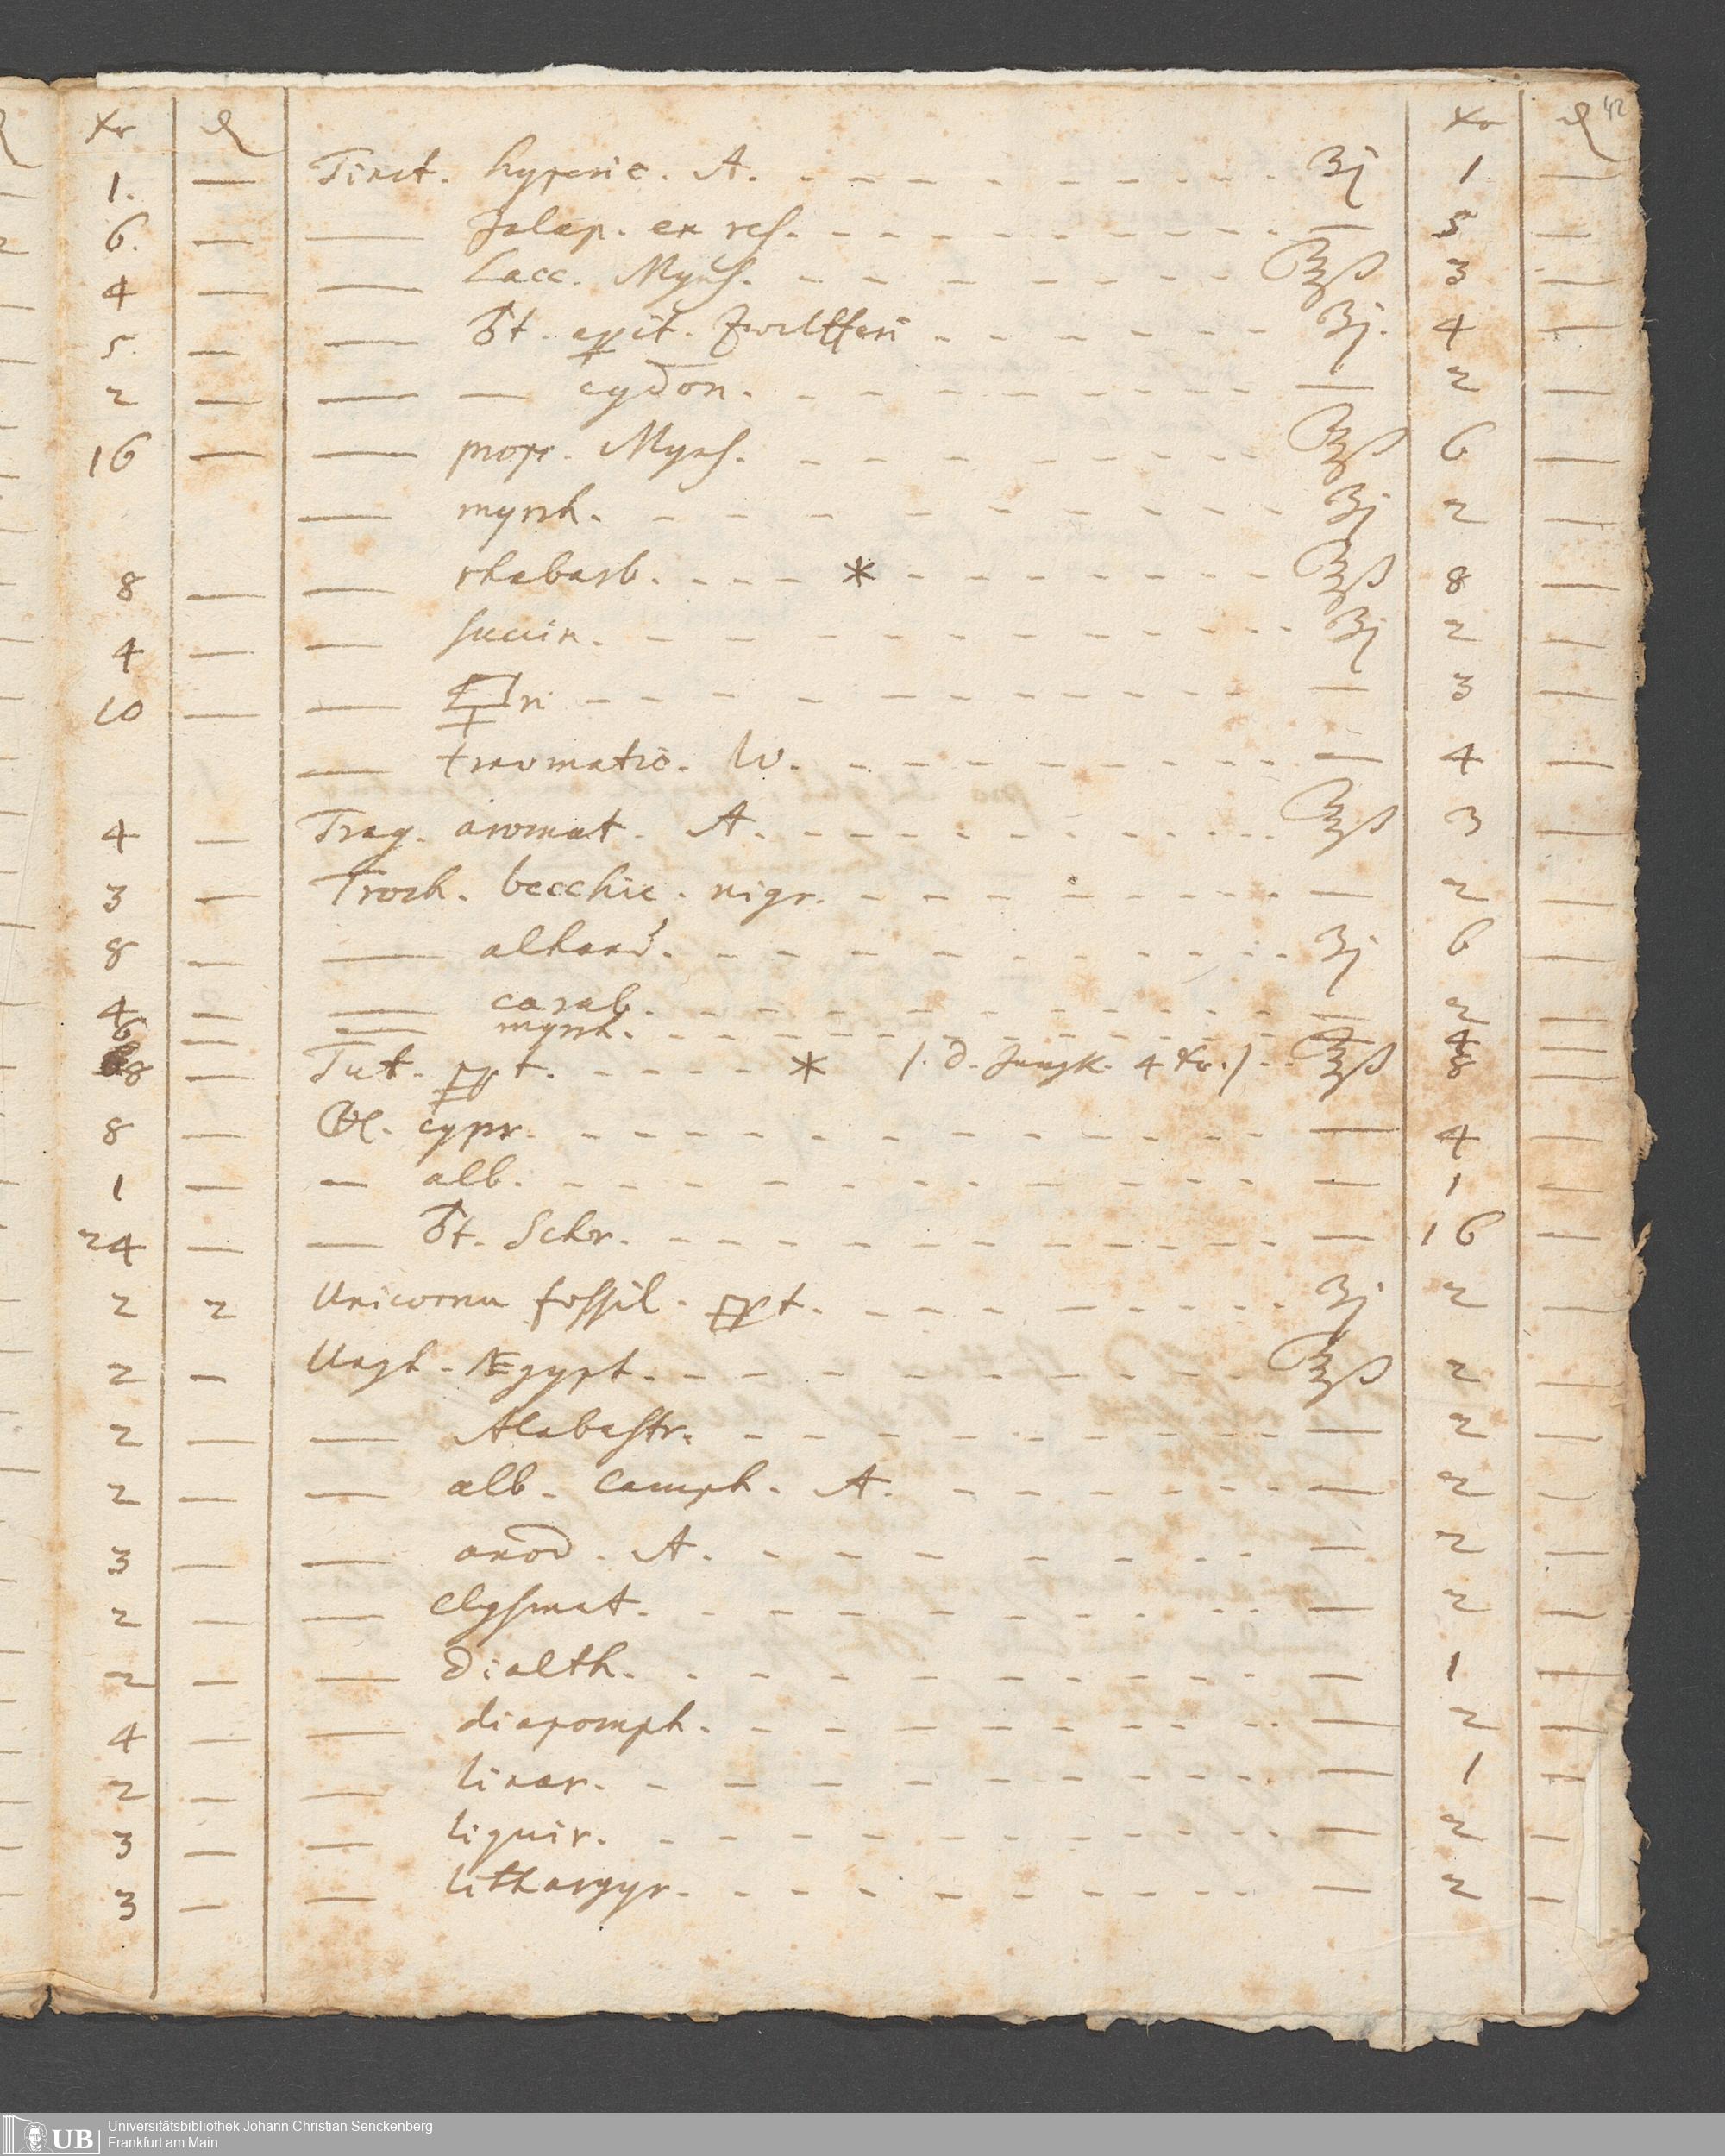 42
xr ₰ xr ₰
1. — Tinct. hyperic. A. ʒj 1 —
6. — — Jalap. ex res. — 5 —
4 — — Lacc. Myns. ʒß 3 —
5. — — ♂t. Zwelfferi ʒj. 4 —
2 — — — cydon. — 2 —
16 — — propr. Myns. ʒß 6 —
— myrrh. ʒj 2 —
8 — — rhabarb. * ʒß 8 —
4 — — succin. ʒj 2 —
10 — — 🜿ri — 3 —
— traumatic. W. — 4 —
4 — Trag. aromat. A. ʒß 3 —
3 — Troch. becchic. nigr. — 2 —
8 — — alhand. ʒj 6 —
4 — — carab. — 2 —
6 — — myrrh. — 4 —
8 — Tut. ppt. * /. d. Jungk. 4 xr./ ʒß 8 —
8 — cypr. — 4 —
1 — — alb. — 1 —
24 — — ♂t. Schr. — 16 —
2 2 Unicornu fossil. ppt. ʒj 2 —
2 — Ungt. Ægypt. ʒß 2 —
2 — — Alabastr. — 2 —
2 — — alb. camph. A. — 2 —
3 — — anod. A. — 2 —
2 — — clysmat. — 2 —
2 — — dialth. — 1 —
4 — — diapomph. — 2 —
2 — — linar. — 1 —
3 — — liquir. — 2 —
3 — — lithargyr. — 2 —
UB Universitätsbibliothek Johann Christian Senckenberg
Frankfurt am Main